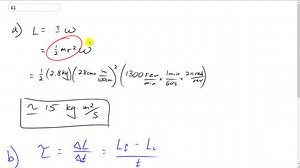 61
a) L = I ω
= ½ m r² ω
= ½ (2.8 kg) (28 cm 1m/100cm)² (1300 rev/min × 1 min/60s × 2π rad/rev)
≃ 15 kg·m²/s
b) τ = ΔL/Δt = L_f - L_i/t